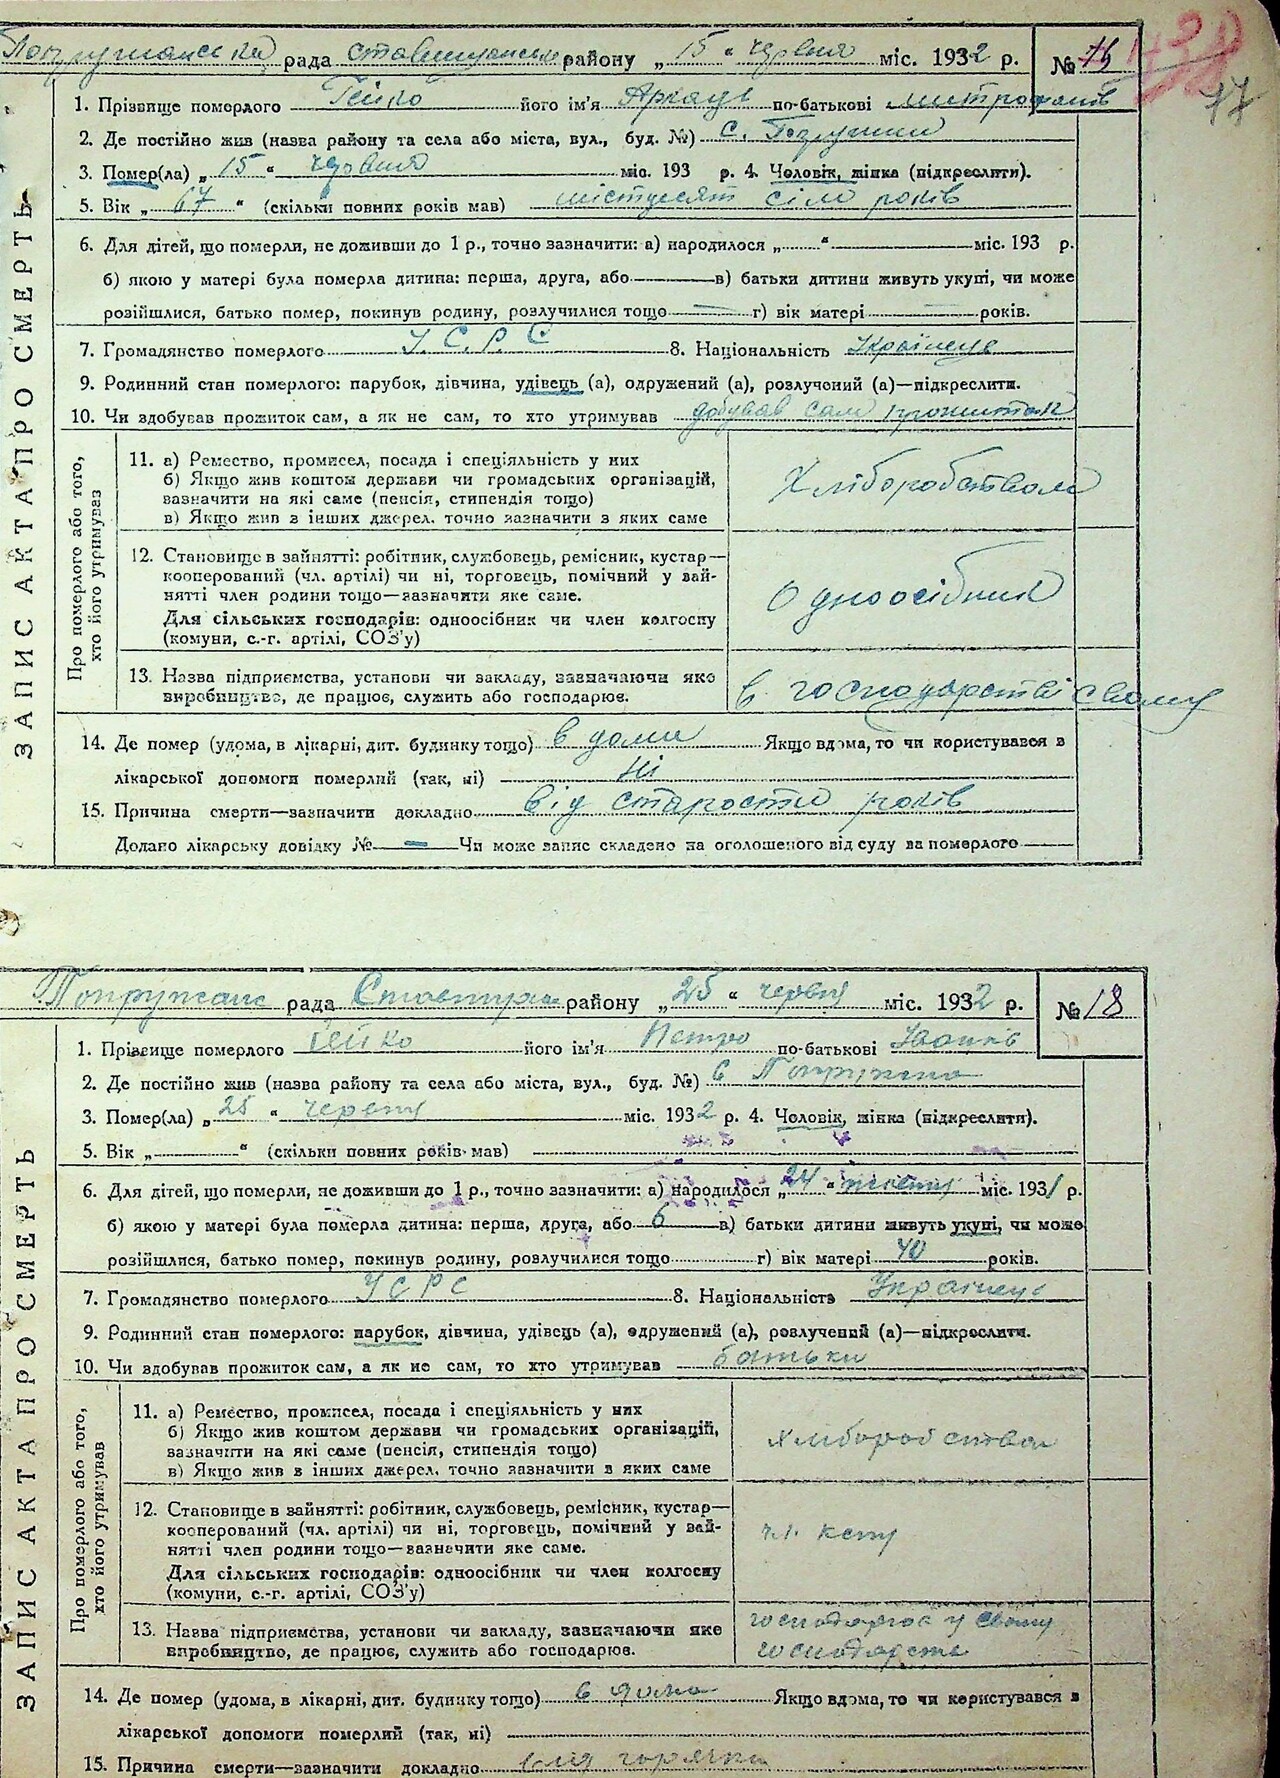 Попружанська рада Ставищанськ району „15“ червня міс. 1932 р. №
17
1. Прізвище померлого Гейко його ім'я по-батькові митрофанів
2. Де постійно жив (назва району та села або міста, вул., буд. №) с. Попружни
3. Помер(ла) „15“ червня міс. 193 р. 4. Чоловік, жінка (підкреслити).
5. Вік „67“ (скільки повних років мав) шістдесят сім років
6. Для дітей, що померли, не доживши до 1 р., точно зазначити: а) народилося „ “ міс. 193 р.
б) якою у матері була померла дитина: перша, друга, або в) батьки дитини живуть укупі, чи може
розійшлися, батько помер, покинув родину, розлучилися тощо г) вік матері років.
7. Громадянство померлого У. С. Р. С 8. Національність Українець
9. Родинний стан померлого: парубок, дівчина, удівець (а), одружений (а), розлучений (а)—підкреслити.
10. Чи здобував прожиток сам, а як не сам, то хто утримував добував сам прожиток
ЗАПИС АКТА ПРО СМЕРТЬ
Про померлого або того,
хто його утримував
11. а) Ремество, промисел, посада і спеціяльність у них
б) Якщо жив коштом держави чи громадських організацій,
зазначити на які саме (пенсія, стипендія тощо)
в) Якщо жив з інших джерел, точно зазначити з яких саме
Хліборобством
12. Становище в зайнятті: робітник, службовець, ремісник, кустар—
кооперований (чл. артілі) чи ні, торговець, помічний у зай-
нятті член родини тощо—зазначити яке саме.
Для сільських господарів: одноосібник чи член колгоспу
(комуни, с.-г. артілі, СОЗ'у)
Одноосібник
13. Назва підприємства, установи чи закладу, зазначаючи яке
виробництво, де працює, служить або господарює.
в господарстві свому
14. Де помер (удома, в лікарні, дит. будинку тощо) в дома Якщо вдома, то чи користувався в
лікарської допомоги померлий (так, ні) Ні
15. Причина смерти—зазначити докладно від старости років
Додано лікарську довідку № — Чи може запис складено на оголошеного від суду за померлого
Попружанс рада району „25“ червня міс. 1932 р. № 18
1. Прізвище померлого Гейко його ім'я Петро по-батькові Іванів
2. Де постійно жив (назва району та села або міста, вул., буд. №) с Попружна
3. Помер(ла) „25“ червня міс. 1932 р. 4. Чоловік, жінка (підкреслити).
5. Вік „ “ (скільки повних років мав)
6. Для дітей, що померли, не доживши до 1 р., точно зазначити: а) народилося „24“ міс. 1931 р.
б) якою у матері була померла дитина: перша, друга, або 6 в) батьки дитини живуть укупі, чи може
розійшлися, батько помер, покинув родину, розлучилися тощо г) вік матері 40 років.
7. Громадянство померлого УСРС 8. Національність Українець
9. Родинний стан померлого: парубок, дівчина, удівець (а), одружений (а), розлучений (а)—підкреслити.
10. Чи здобував прожиток сам, а як не сам, то хто утримував батьки
ЗАПИС АКТА ПРО СМЕРТЬ
Про померлого або того,
хто його утримував
11. а) Ремество, промисел, посада і спеціяльність у них
б) Якщо жив коштом держави чи громадських організацій,
зазначіти на які саме (пенсія, стипендія тощо)
в) Якщо жив в інших джерел, точно зазначити з яких саме
хліборобством
12. Становище в зайнятті: робітник, службовець, ремісник, кустар—
кооперований (чл. артілі) чи ні, торговець, помічний у зай-
нятті член родини тощо—зазначити яке саме.
Для сільських господарів: одноосібник чи член колгоспу
(комуни, с.-г. артілі, СОЗ'у)
13. Назва підприємства, установи чи закладу, зазначаючи яке
виробництво, де працює, служить або господарює.
у свому
14. Де помер (удома, в лікарні, дит. будинку тощо) в дома Якщо вдома, то чи користувався в
лікарської допомоги померлий (так, ні)
15. Причина смерти—зазначити докладно горячки